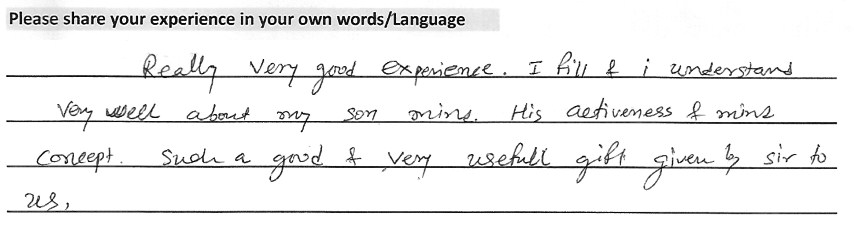 Please share your experience in your own words/Language
Really very good experience. I fill & i understand
very well about my son mins. His activeness & mins
concept. Such a good & very usefull gift given by sir to
us,